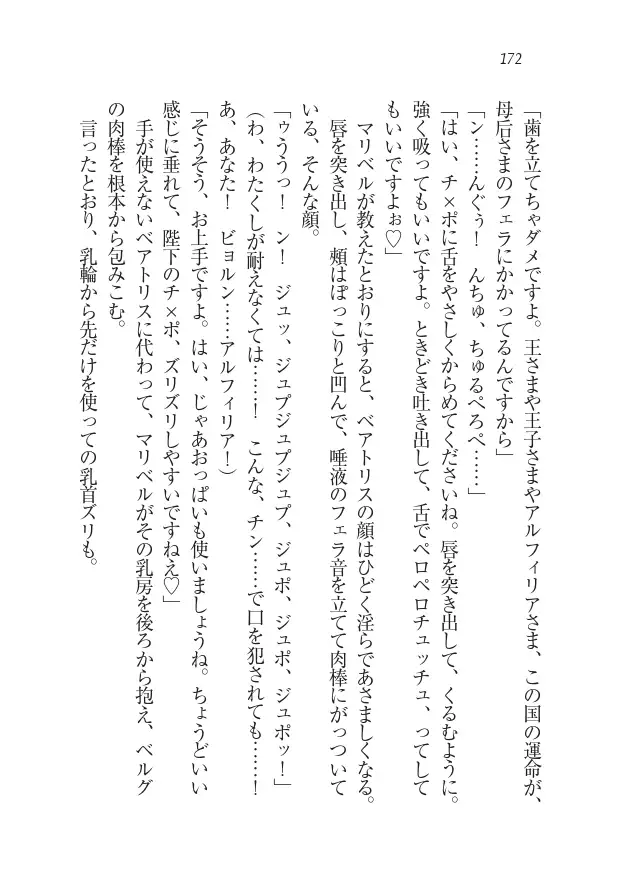 172
「歯を立てちゃダメですよ。王さまや王子さまやアルフィリアさま、この国の運命が、
母后さまのフェラにかかってるんですから」
「ン……んぐぅ！　んちゅ、ちゅるぺろぺ……」
「はい、チ×ポに舌をやさしくからめてくださいね。唇を突き出して、くるむように。
強く吸ってもいいですよ。ときどき吐き出して、舌でペロペロチュッチュ、ってして
もいいですよぉ♡」
マリベルが教えたとおりにすると、ベアトリスの顔はひどく淫らであさましくなる。
唇を突き出し、頰はぽっこりと凹んで、唾液のフェラ音を立てて肉棒にがっついて
いる、そんな顔。
「ゥううっ！　ン！　ジュッ、ジュプジュプジュプ、ジュポ、ジュポ、ジュポッ！」
（わ、わたくしが耐えなくては……！　こんな、チン……で口を犯されても……！
あ、あなた！　ビョルン……アルフィリア！）
「そうそう、お上手ですよ。はい、じゃあおっぱいも使いましょうね。ちょうどいい
感じに垂れて、陛下のチ×ポ、ズリズリしやすいですねえ♡」
手が使えないベアトリスに代わって、マリベルがその乳房を後ろから抱え、ベルグ
の肉棒を根本から包みこむ。
言ったとおり、乳輪から先だけを使っての乳首ズリも。